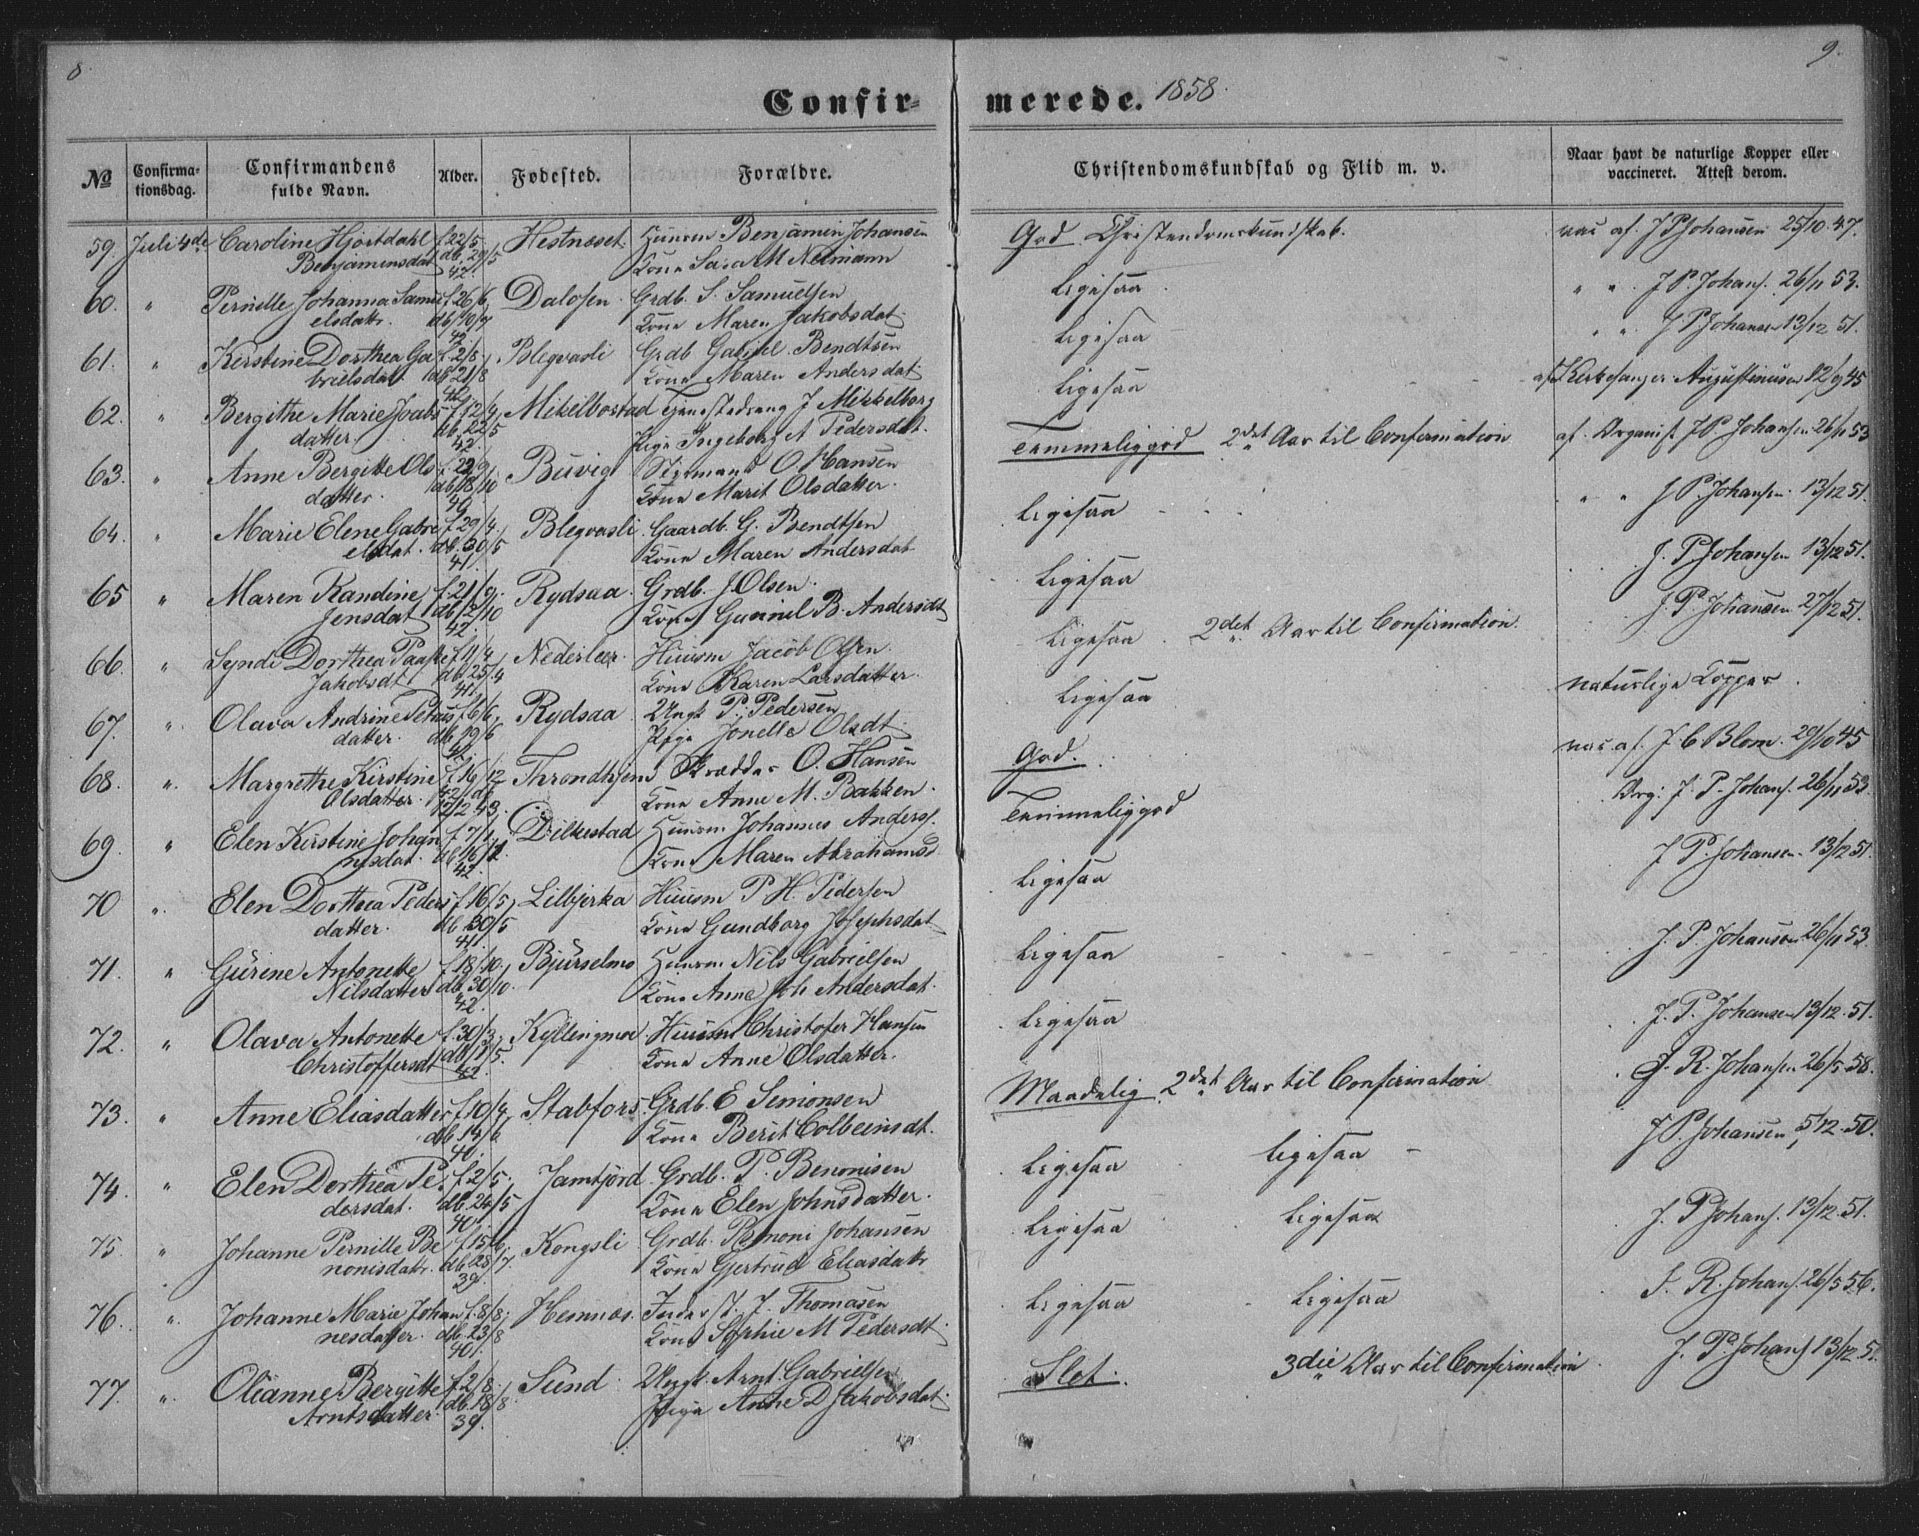 8.
9.
Confirmerede. 1858.
No
Confirmationsdag.
Confirmandens fulde Navn.
Alder.
Fødested.
Forældre.
Christendomskundskab og Flid m. v.
Naar havt de naturlige Kopper eller vaccineret. Attest derom.
59. Juli 4de Caroline Hjortdahl f. 22/5 Hestneset. Huusm Benjamin Johansen God Christendomskundskab. vac af. J P Johansen 25/10 47.
Benjaminsdat db. 29/5 42. Kone Sara M Neimann
60. " Pernille Johanna Samu f. 26/6 Dalosen. Grdb. S. Samuelsen Ligesaa " " J. P. Johans. 26/11 53.
elsdatr. db 10/7 42 Kone Maren Jakobsdat.
61. " Kerstine Dorthea Ga f. 2/8 Blegvasli Grdb Gabriel Bendtsen Ligesaa " " J. P Johansen 13/12 51.
brielsdat db 21/8 42 Kone Maren Andersdat.
62. " Bergithe Marie Joabs f. 12/4 Mikelbostad Tjenestedreng J Mikkelborg Ligesaa af Kirkesanger Augustinusen 12/9 45
datter. db. 22/5 42. Pige Ingeborg A Pedersdat.
63. " Anne Bergitte Ols f. 22/9 Buvig Styrmand O. Hansen Temmeliggod 2det Aar til Confirmation af. Organist J P Johansen 26/11 53
datter. db 18/10 40 Kone Marit Olsdatter.
64. " Marie Elene Gabri f. 29/4. Blegvasli Gaardb. G. Bendtsen Ligesaa " " J P. Johansen. 13/12 51.
elsdat. db. 30/5 41. Kone Maren Andersdat
65 " Maren Randine f. 21/9. Rydsaa. Grdb. J Olsen. Ligesaa J. P Johansen 13/12 51.
Jensdat db. 12/10 42. Kone Gunnil B. Andersdt
66. " Synde Dorthea Paaske f. 11/4 Nederleer. Huusm Jacob Olsen. Ligesaa 2det Aar til Confirmation. J. P. Johansen 27/12 51.
Jakobsdt db. 25/4 41. Kone Karen Larsdatter.
67. " Olava Andrine Petrus f. 6/6 Rydsaa Ungk P. Pedersen Ligesaa naturlige Kopper.
datter. db. 19/6 42 Pige Jonette Olsdt.
68. " Margrethe Kirstine f. 16/12 Throndhjem Skrædder O. Hansen God. vac af. J. C Blom. 29/10 45
Olsdatter. 42. db. 12/12 43. Kone Anne M. Bakken.
69. " Elen Kirstine Johan f. 7/1. Dilkestad Huusm Johannes Anders. Temmeliggod Org: J. P. Johans. 26/11 53.
nesdat. db. 16/1. 42. Kone Maren Abrahamsd
70 " Elen Dorthea Peders f. 16/5 Lilbjerka Huusm P. H. Pedersen Ligesaa J. P. Johansen. 13/12 51.
datter. db. 30/5 41. Kone Gundborg Josephsdat
71. " Gurine Antonette f. 18/10. Bjurselmo Huusm Nils Gabrielsen Ligesaa J. P. Johansen 26/11 53.
Nilsdatter db. 30/10. 42. Kone Anne Joh Andersdat.
72. " Olava Antonette f. 30/3. Kyllingmoe Huusm Christofer Hansen Ligesaa J. P. Johansen 13/12. 51.
Christoffersdt db 1/5. 42. Kone Anne Olsdatter.
73. " Anne Eliasdatter f. 10/4 Stabfors Grdb. E Simonsen Maadelig 2det Aar til Confirmation J. R. Johansen 26/5 58.
db. 14/6 40. Kone Berit Colbeinsdt.
74. " Elen Dorthea Pe f. 2/5. Jamtjord Grdb. P. Benonisen Ligesaa ligesaa J P. Johansen 5/12. 50.
dersdat. db. 24/5 40. Kone Elen Johnsdatter.
75 " Johanne Pernille Be f. 15/6. Kongsli Grdb. Benoni Johansen Ligesaa Ligesaa J. P Johans. 13/12. 51.
nonisdatr. db 28/7 39. Kone Gjertrud Eliasdatr
76. " Johanne Marie Johan f. 8/8; Hemnæs. Inderst. J. Thomasen Ligesaa Ligesaa J. R. Johans. 26/5 56.
nesdatter. db. 23/8 40. Kone Sophie M Pedersdt.
77. " Olianne Bergitte f. 2/8. Sund. Ungk. Arnt Gabrielsen Slet. 3die Aar til Confirmation J. P. Johans 13/12. 51.
Arntsdatter. db. 18/8 39. Pige Anne D Jakobsdat.